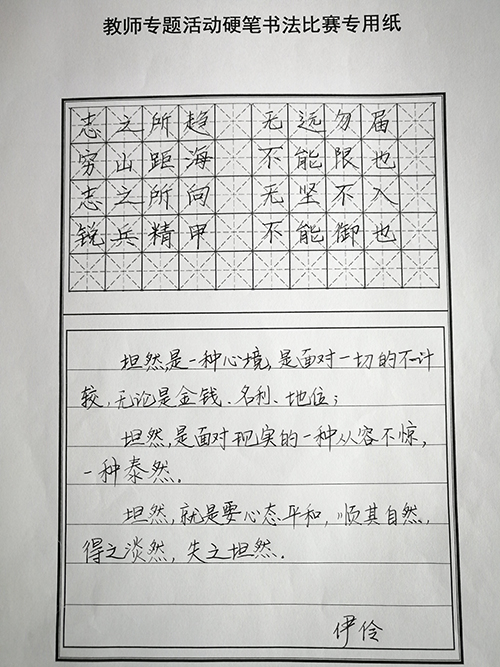 教师专题活动硬笔书法比赛专用纸
志之所趋 无远勿届
穷山距海 不能限也
志之所向 无坚不入
锐兵精甲 不能御也
坦然,是一种心境,是面对一切的不计
较,无论是金钱、名利、地位;
坦然,是面对现实的一种从容不惊,
一种泰然.
坦然,就是要心态平和,顺其自然,
得之淡然,失之坦然.
伊伶